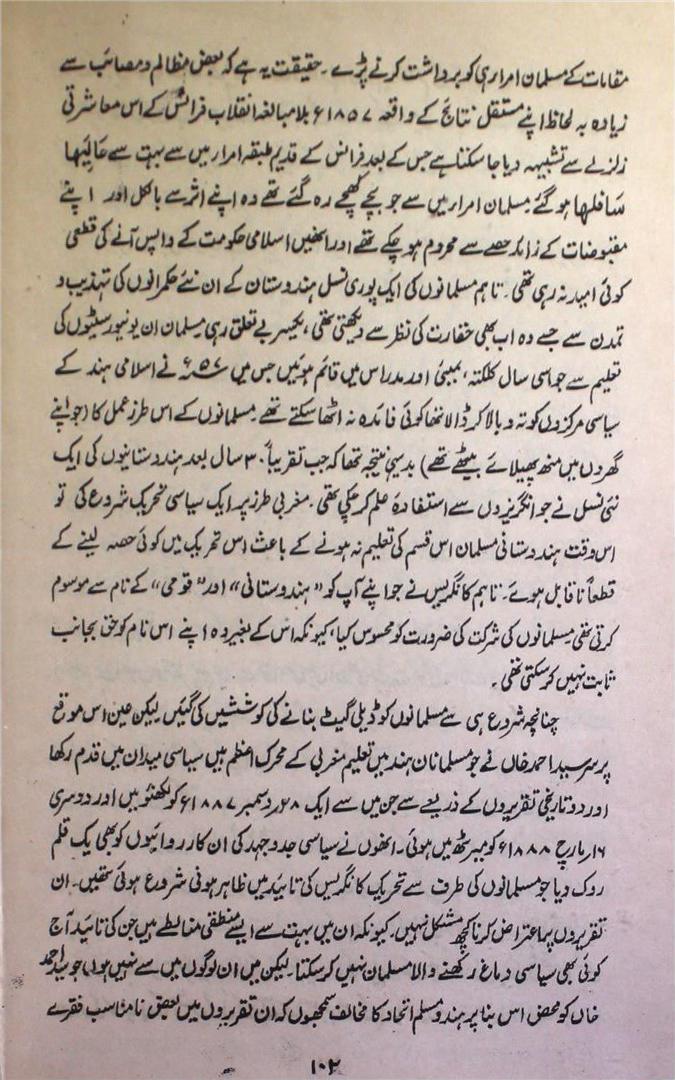 مقامات کے مسلمان امرا ہی کو برداشت کرنے پڑے۔ حقیقت یہ ہے کہ بعض مظالم و مصائب سے
زیادہ بہ لحاظ اپنے مستقل نتائج کے واقعہ ۱۸۵۷ء بلا مبالغہ انقلاب فرانس کے اس معاشرتی
زلزلے سے تشبیہہ دیا جا سکتا ہے جس کے بعد فرانس کے قدیم طبقہ امرا میں سے بہت سے عَالِیَہا
سَافِلَہا ہو گئے۔ مسلمان امرا میں سے جو بچے کھچے رہ گئے تھے وہ اپنے اثر سے بالکل اور اپنے
مقبوضات کے زائد حصے سے محروم ہو چکے تھے اور انھیں اسلامی حکومت کے واپس آنے کی قطعی
کوئی امید نہ رہی تھی۔ تاہم مسلمانوں کی ایک پوری نسل ہندوستان کے ان نئے حکمرانوں کی تہذیب و
تمدن سے جسے وہ اب بھی حقارت کی نظر سے دیکھتی تھی، یکسر بے تعلق رہی مسلمان ان یونیورسیٹیوں کی
تعلیم سے جو اسی سال کلکتہ، بمبئی اور مدراس میں قائم ہوئیں جس میں ۵۷ء نے اسلامی ہند کے
سیاسی مرکزوں کو تہ و بالا کر ڈالا تھا کوئی فائدہ نہ اٹھا سکتے تھے۔ مسلمانوں کے اس طرز عمل کا (جو اپنے
گھروں میں منھ پھیلائے بیٹھے تھے) بدیہی نتیجہ تھا کہ جب تقریباً ۳۰ سال بعد ہندوستانیوں کی ایک
نئی نسل نے جو انگریزوں سے استفادۂ علم کر چکی تھی۔ مغربی طرز پر ایک سیاسی تحریک شروع کی تو
اس وقت ہندوستانی مسلمان اس قسم کی تعلیم نہ ہونے کے باعث اس تحریک میں کوئی حصہ لینے کے
قطعاً ناقابل ہوئے۔ تاہم کانگریس نے جو اپنے آپ کو "ہندوستانی" اور "قومی" کے نام سے موسوم
کرتی تھی مسلمانوں کی شرکت کی ضرورت کو محسوس کیا، کیونکہ اس کے بغیر وہ اپنے اس نام کو حق بجانب
ثابت نہیں کر سکتی تھی۔
چنانچہ شروع ہی سے مسلمانوں کو ڈیلی گیٹ بنانے کی کوششیں کی گئیں لیکن عین اس موقع
پر سر سید احمد خاں نے جو مسلمانان ہند میں تعلیم مغربی کے محرک اعظم ہیں سیاسی میدان میں قدم رکھا
اور دو تاریخی تقریروں کے ذریعے سے جن میں سے ایک ۲۸ دسمبر ۱۸۸۷ء کو لکھنؤ میں اور دوسری
۱۶ مارچ ۱۸۸۸ء کو میرٹھ میں ہوئی۔ انھوں نے سیاسی جدوجہد کی ان کارروائیوں کو بھی یک قلم
روک دیا جو مسلمانوں کی طرف سے تحریک کانگریس کی تایید میں ظاہر ہونی شروع ہوئی تھیں۔ ان
تقریروں پر اعتراض کرنا کچھ مشکل نہیں۔ کیونکہ ان میں بہت سے ایسے منطقی مغالطے ہیں جن کی تائید آج
کوئی بھی سیاسی دماغ رکھنے والا مسلمان نہیں کر سکتا۔ لیکن میں ان لوگوں میں سے نہیں ہوں جو سید احمد
خاں کو محض اس بنا پر ہندو مسلم اتحاد کا مخالف سمجھوں کہ ان تقریروں میں بعض نامناسب فقرے
۱۰۲